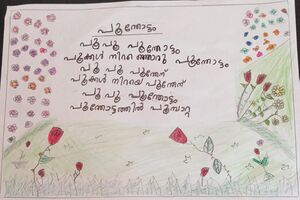 പൂന്തോട്ടം
പൂ പൂ പൂന്തോട്ടം
പൂക്കൾ നിറഞ്ഞൊരു പൂന്തോട്ടം
പൂ പൂ പൂന്തേന്
പൂക്കൾ നിറയെ പൂന്തേന്
പൂ പൂ പൂന്തോട്ടം
പൂന്തോട്ടത്തിൽ പൂമ്പാറ്റ